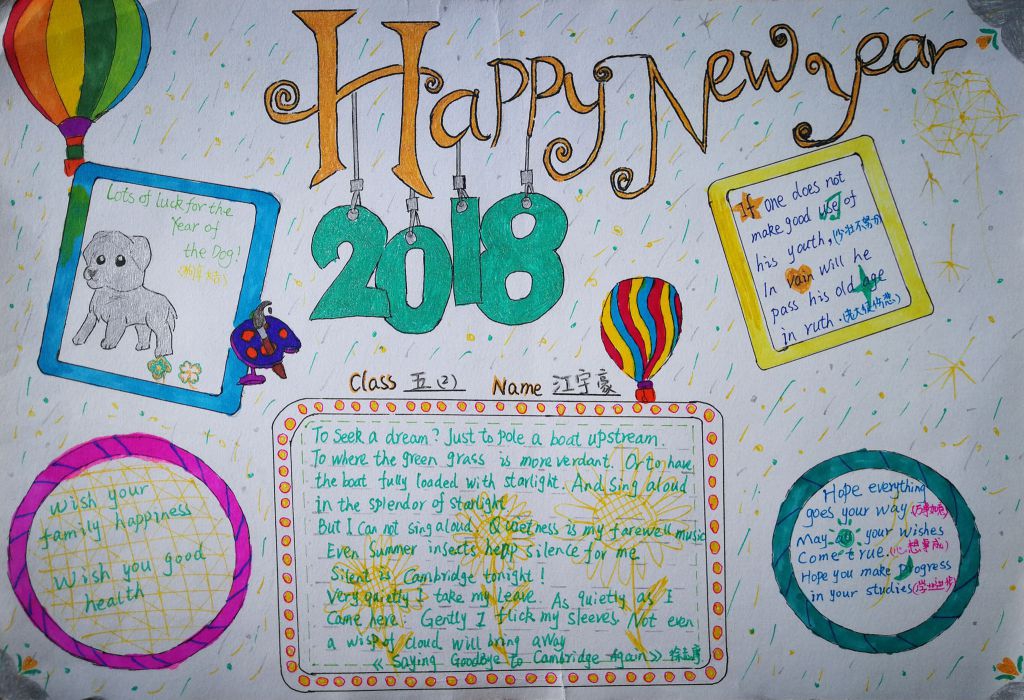 Happy New Year
2018
Lots of luck for the
Year of
the Dog!
If one does not
make good use of
his youth,(少壮不努力)
In vain will he
pass his old age
in ruth.(老大徒伤悲)
Class 五(2) Name 江宇豪
To Seek a dream? Just to pole a boat upstream.
To where the green grass is more verdant. Or to have
the boat fully loaded with starlight. And sing aloud
in the splendor of starlight
But I Can not sing aloud Quietness is my farewell music
Even Summer insects hepp silence for me
Silent is Cambridge tonight!
Very quietly I take my Leave. As quietly as I
Came here: Gently I flick my sleeves Not even
a wisp of cloud will bring away
《Saying Goodbye to Cambridge Again》徐志摩
Wish your
family happiness
Wish you good
health
Hope everything
goes your way(万事如意)
May all your wishes
Come true.(心想事成)
Hope you make progress
in your studies(学习进步)